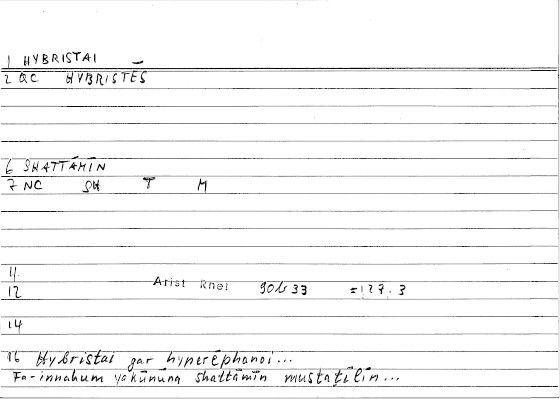 1 HYBRISTAI
2 QC HYBRISTĒS
6 SHATTĀMĪN
7 NC SH T M
11
12 Arist Rhet 90b33 = 127.3
14
16 Hybristai gar hyperēphanoi...
Fa-innahum yakūnūna shattāmīn mustaṭīlīn...